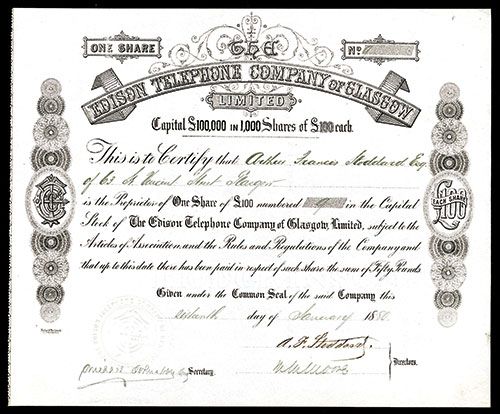 ONE SHARE
THE
No
EDISON TELEPHONE COMPANY OF GLASGOW
LIMITED
Capital £100,000 IN 1,000 Shares of £100 each.
This is to Certify that Arthur Francis Stoddard Esq.
of 63 St. Vincent Street Glasgow
is the Proprietor of One Share of £100 numbered in the Capital
Stock of The Edison Telephone Company of Glasgow, Limited, subject to the
Articles of Association, and the Rules and Regulations of the Company and
that up to this date there has been paid in respect of such Share the sum of Fifty Pounds
EACH SHARE
£100
Given under the Common Seal of the said Company this
day of January 1880
A. F. Stoddard.
Secretary.
Directors.